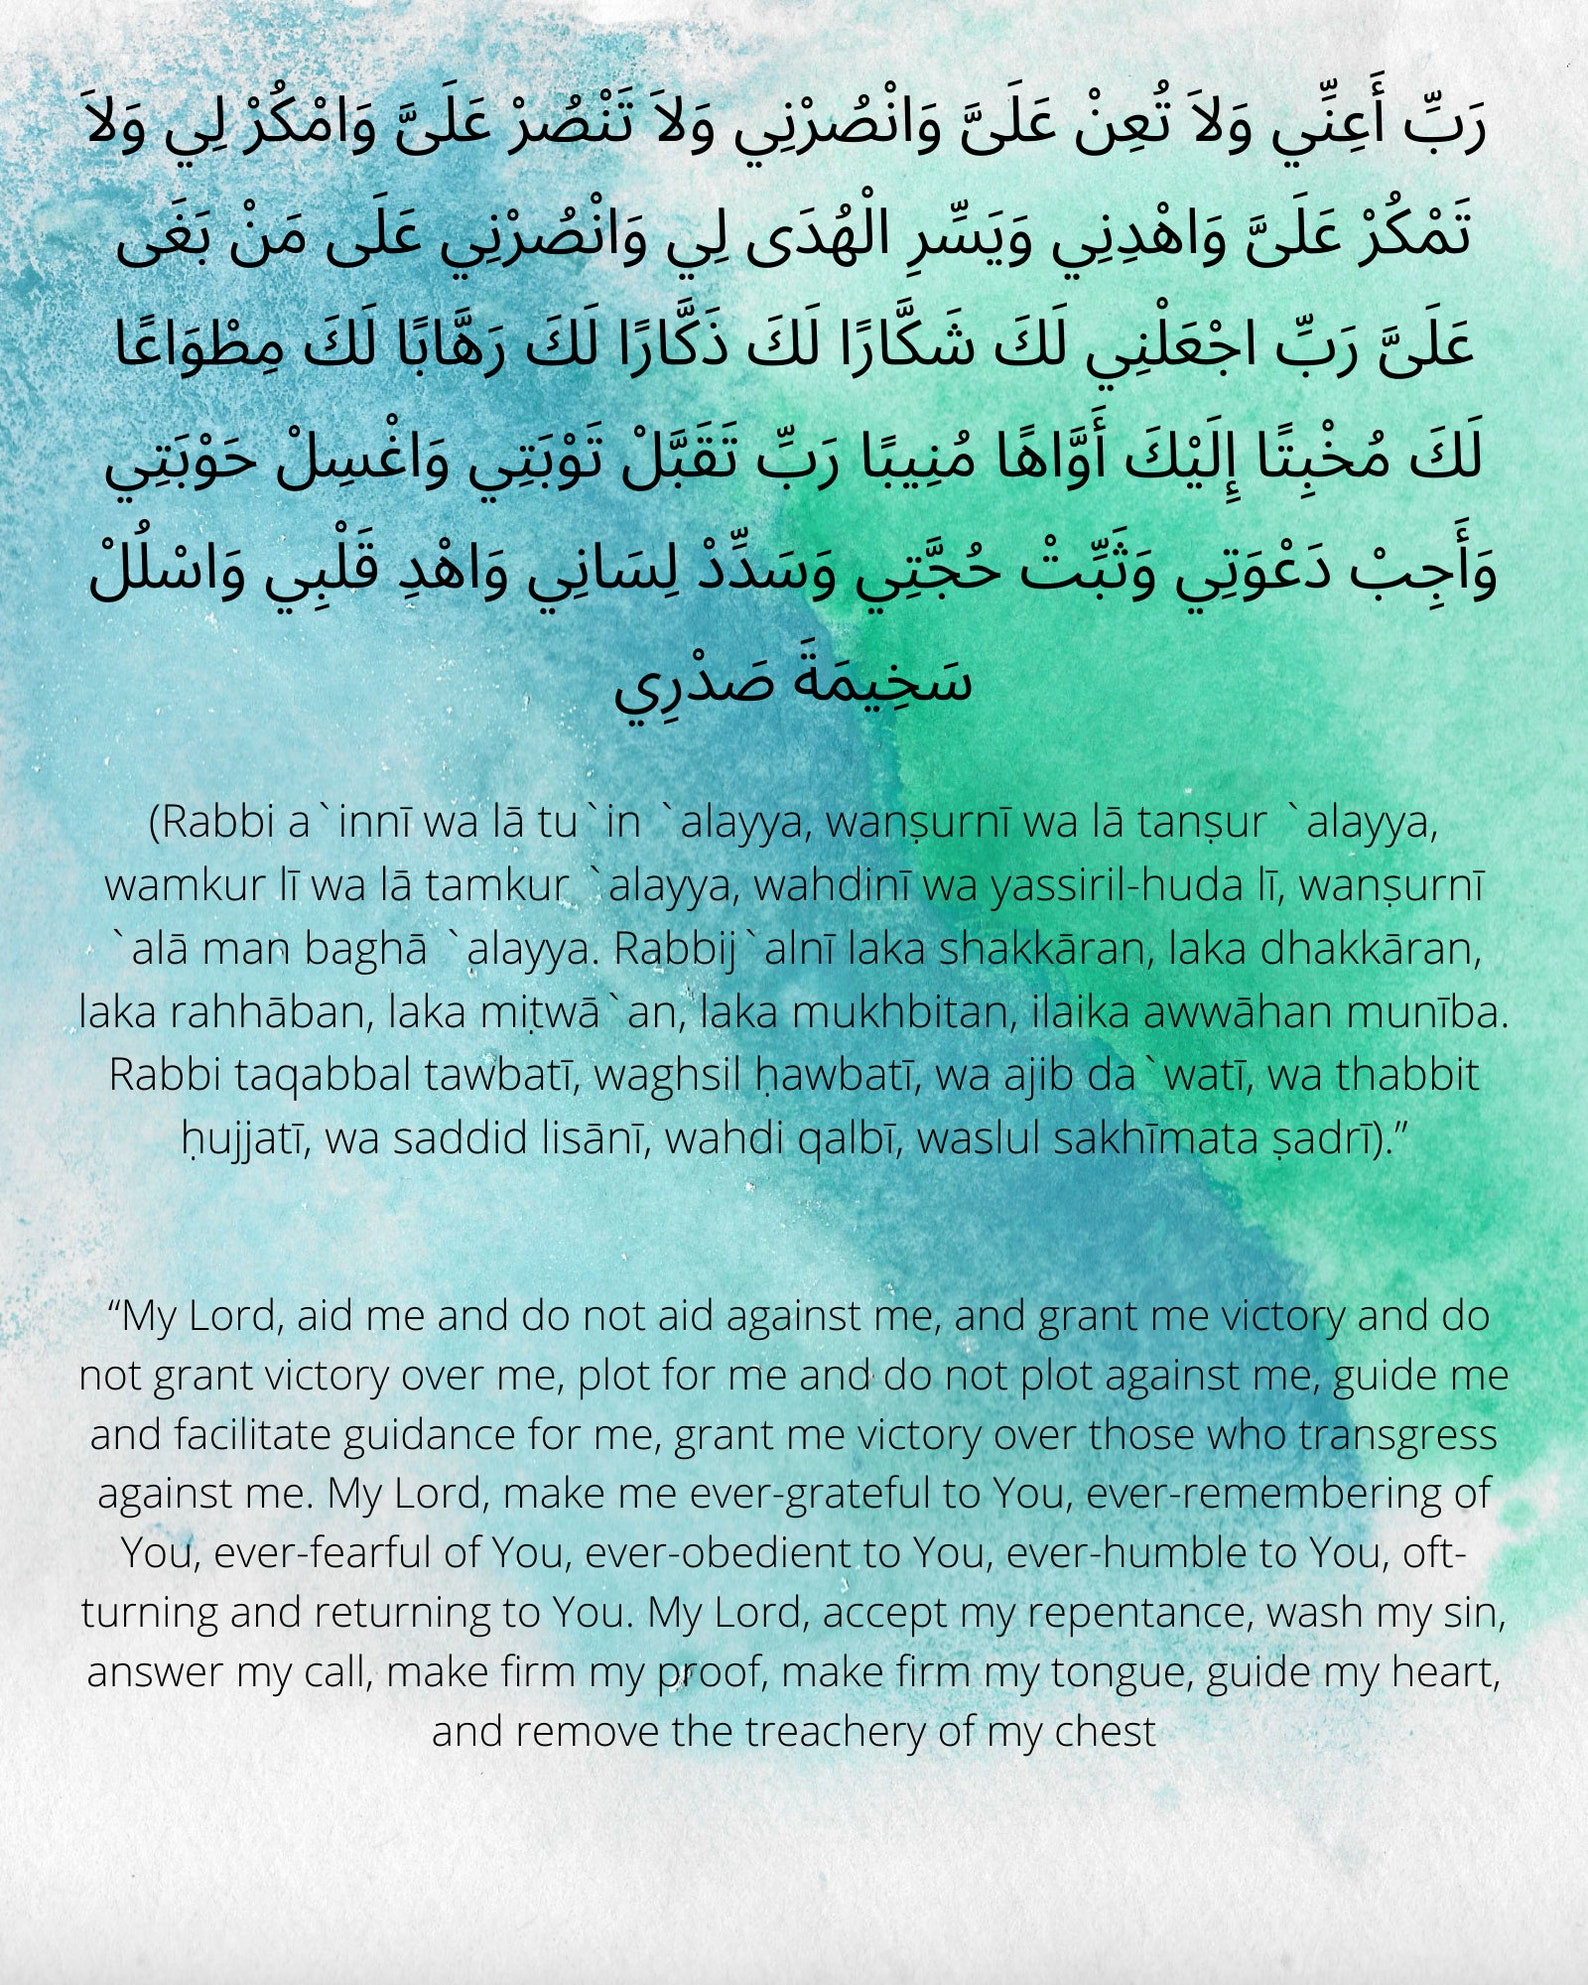 رَبِّ أَعِنِّي وَلاَ تُعِنْ عَلَىَّ وَانْصُرْنِي وَلاَ تَنْصُرْ عَلَىَّ وَامْكُرْ لِي وَلاَ
تَمْكُرْ عَلَىَّ وَاهْدِنِي وَيَسِّرِ الْهُدَى لِي وَانْصُرْنِي عَلَى مَنْ بَغَى
عَلَىَّ رَبِّ اجْعَلْنِي لَكَ شَكَّارًا لَكَ ذَكَّارًا لَكَ رَهَّابًا لَكَ مِطْوَاعًا
لَكَ مُخْبِتًا إِلَيْكَ أَوَّاهًا مُنِيبًا رَبِّ تَقَبَّلْ تَوْبَتِي وَاغْسِلْ حَوْبَتِي
وَأَجِبْ دَعْوَتِي وَثَبِّتْ حُجَّتِي وَسَدِّدْ لِسَانِي وَاهْدِ قَلْبِي وَاسْلُلْ
سَخِيمَةَ صَدْرِي
(Rabbi a`innī wa lā tu`in `alayya, wanṣurnī wa lā tanṣur `alayya,
wamkur lī wa lā tamkur `alayya, wahdinī wa yassiril-huda lī, wanṣurnī
`alā man baghā `alayya. Rabbij`alnī laka shakkāran, laka dhakkāran,
laka rahhāban, laka miṭwā`an, laka mukhbitan, ilaika awwāhan munība.
Rabbi taqabbal tawbatī, waghsil ḥawbatī, wa ajib da`watī, wa thabbit
ḥujjatī, wa saddid lisānī, wahdi qalbī, waslul sakhīmata ṣadrī).”
“My Lord, aid me and do not aid against me, and grant me victory and do
not grant victory over me, plot for me and do not plot against me, guide me
and facilitate guidance for me, grant me victory over those who transgress
against me. My Lord, make me ever-grateful to You, ever-remembering of
You, ever-fearful of You, ever-obedient to You, ever-humble to You, oft-
turning and returning to You. My Lord, accept my repentance, wash my sin,
answer my call, make firm my proof, make firm my tongue, guide my heart,
and remove the treachery of my chest